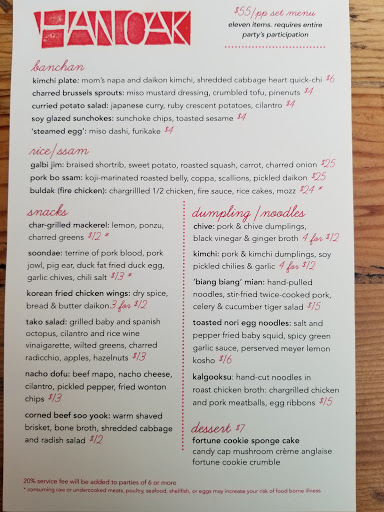 HAN OAK
$55/pp set menu
eleven items. requires entire
party's participation
banchan
kimchi plate: mom's napa and daikon kimchi, shredded cabbage heart quick-chi $6
charred brussels sprouts: miso mustard dressing, crumbled tofu, pinenuts $4
curried potato salad: japanese curry, ruby crescent potatoes, cilantro $4
soy glazed sunchokes: sunchoke chips, toasted sesame $4
'steamed egg': miso dashi, furikake $4
rice/ssam
galbi jim: braised shortrib, sweet potato, roasted squash, carrot, charred onion $25
pork bo ssam: koji-marinated roasted belly, coppa, scallions, pickled daikon $25
buldak (fire chicken): chargrillled 1/2 chicken, fire sauce, rice cakes, mozz $24 *
snacks
char-grilled mackerel: lemon, ponzu,
charred greens $12 *
soondae: terrine of pork blood, pork
jowl, pig ear, duck fat fried duck egg,
garlic chives, chili salt $13 *
korean fried chicken wings: dry spice,
bread & butter daikon 3 for $12
tako salad: grilled baby and spanish
octopus, cilantro and rice wine
vinaigarette, wilted greens, charred
radicchio, apples, hazelnuts $13
nacho dofu: beef mapo, nacho cheese,
cilantro, pickled pepper, fried wonton
chips $13
corned beef soo yook: warm shaved
brisket, bone broth, shredded cabbage
and radish salad $12
dumpling/noodles
chive: pork & chive dumplings,
black vinegar & ginger broth 4 for $12
kimchi: pork & kimchi dumplings, soy
pickled chilies & garlic 4 for $12
'biang biang' mian: hand-pulled
noodles, stir-fried twice-cooked pork,
celery & cucumber tiger salad $15
toasted nori egg noodles: salt and
pepper fried baby squid, spicy green
garlic sauce, perserved meyer lemon
kosho $16
kalgooksu: hand-cut noodles in
roast chicken broth: chargrilled chicken
and pork meatballs, egg ribbons $15
dessert $7
fortune cookie sponge cake
candy cap mushroom crème anglaise
fortune cookie crumble
20% service fee will be added to parties of 6 or more
* consuming raw or undercooked meats, poultry, seafood, shellfish, or eggs may increase your risk of food borne illness